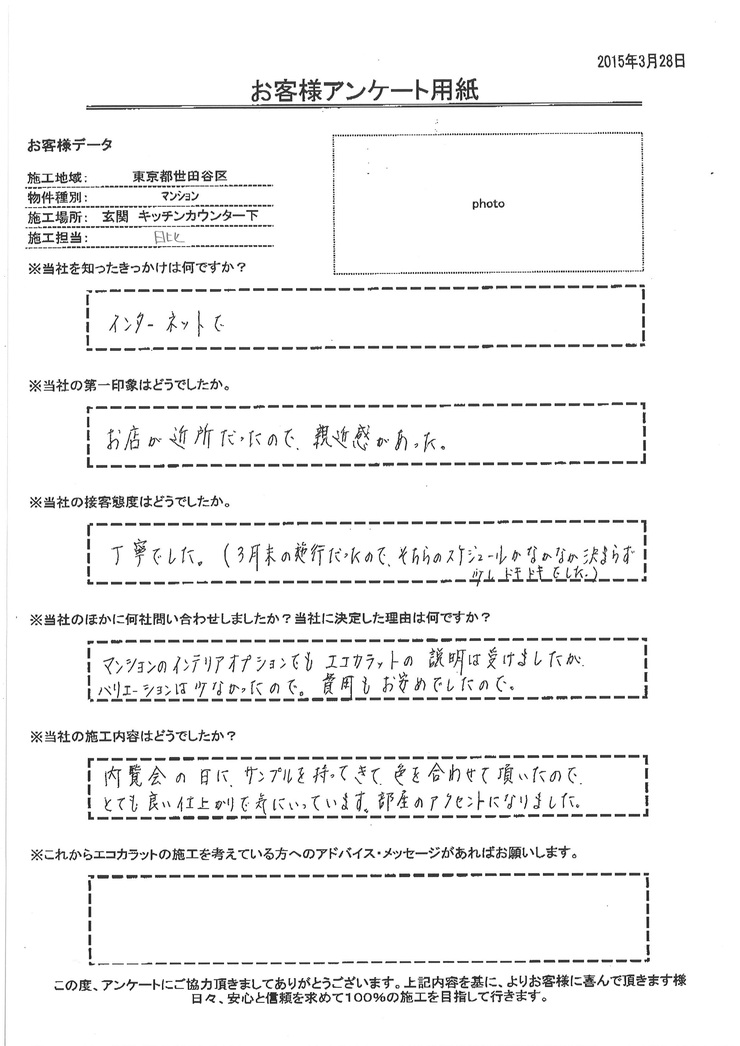 2015年3月28日
お客様アンケート用紙
お客様データ
施工地域： 東京都世田谷区
物件種別： マンション
施工場所： 玄関 キッチンカウンター下
施工担当： 日比
photo
※当社を知ったきっかけは何ですか？
インターネットで
※当社の第一印象はどうでしたか。
お店が近所だったので、親近感があった。
※当社の接客態度はどうでしたか。
丁寧でした。（3月末の施行だったので、そちらのスケジュールがなかなか決まらず
少しドキドキでした。）
※当社のほかに何社問い合わせしましたか？当社に決定した理由は何ですか？
マンションのインテリアオプションでもエコカラットの説明は受けましたが、
バリエーションは少なかったので。費用もお安めでしたので。
※当社の施工内容はどうでしたか？
内覧会の日に、サンプルを持ってきて、色を合わせて頂いたので、
とても良い仕上がりで気にいっています。部屋のアクセントになりました。
※これからエコカラットの施工を考えている方へのアドバイス・メッセージがあればお願いします。
この度、アンケートにご協力頂きましてありがとうございます。上記内容を基に、よりお客様に喜んで頂きます様
日々、安心と信頼を求めて100％の施工を目指して行きます。